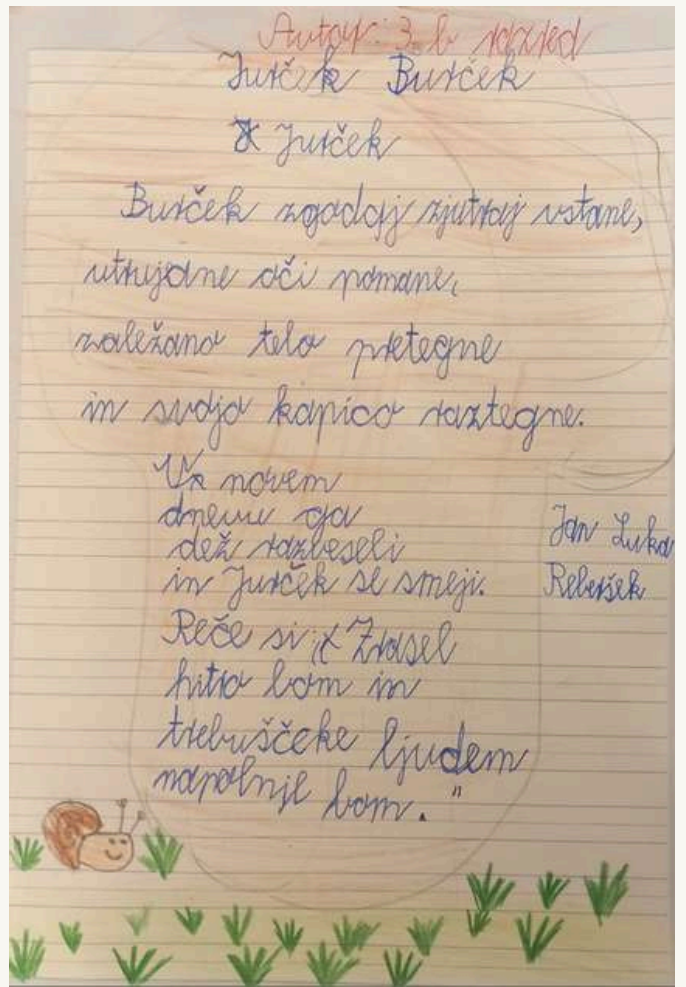 Avtor: 3. b razred
Jurček Burček
Jurček
Burček zgodaj zjutraj vstane,
utrujene oči pomane,
zaležano telo pretegne
in svojo kapico raztegne.
V novem
dnevu ga
dež razveseli
in Jurček se smeji.
Jan Luka
Reberšek
Reče si: "Zrasel
hitro bom in
trebuščeke ljudem
napolnil bom."